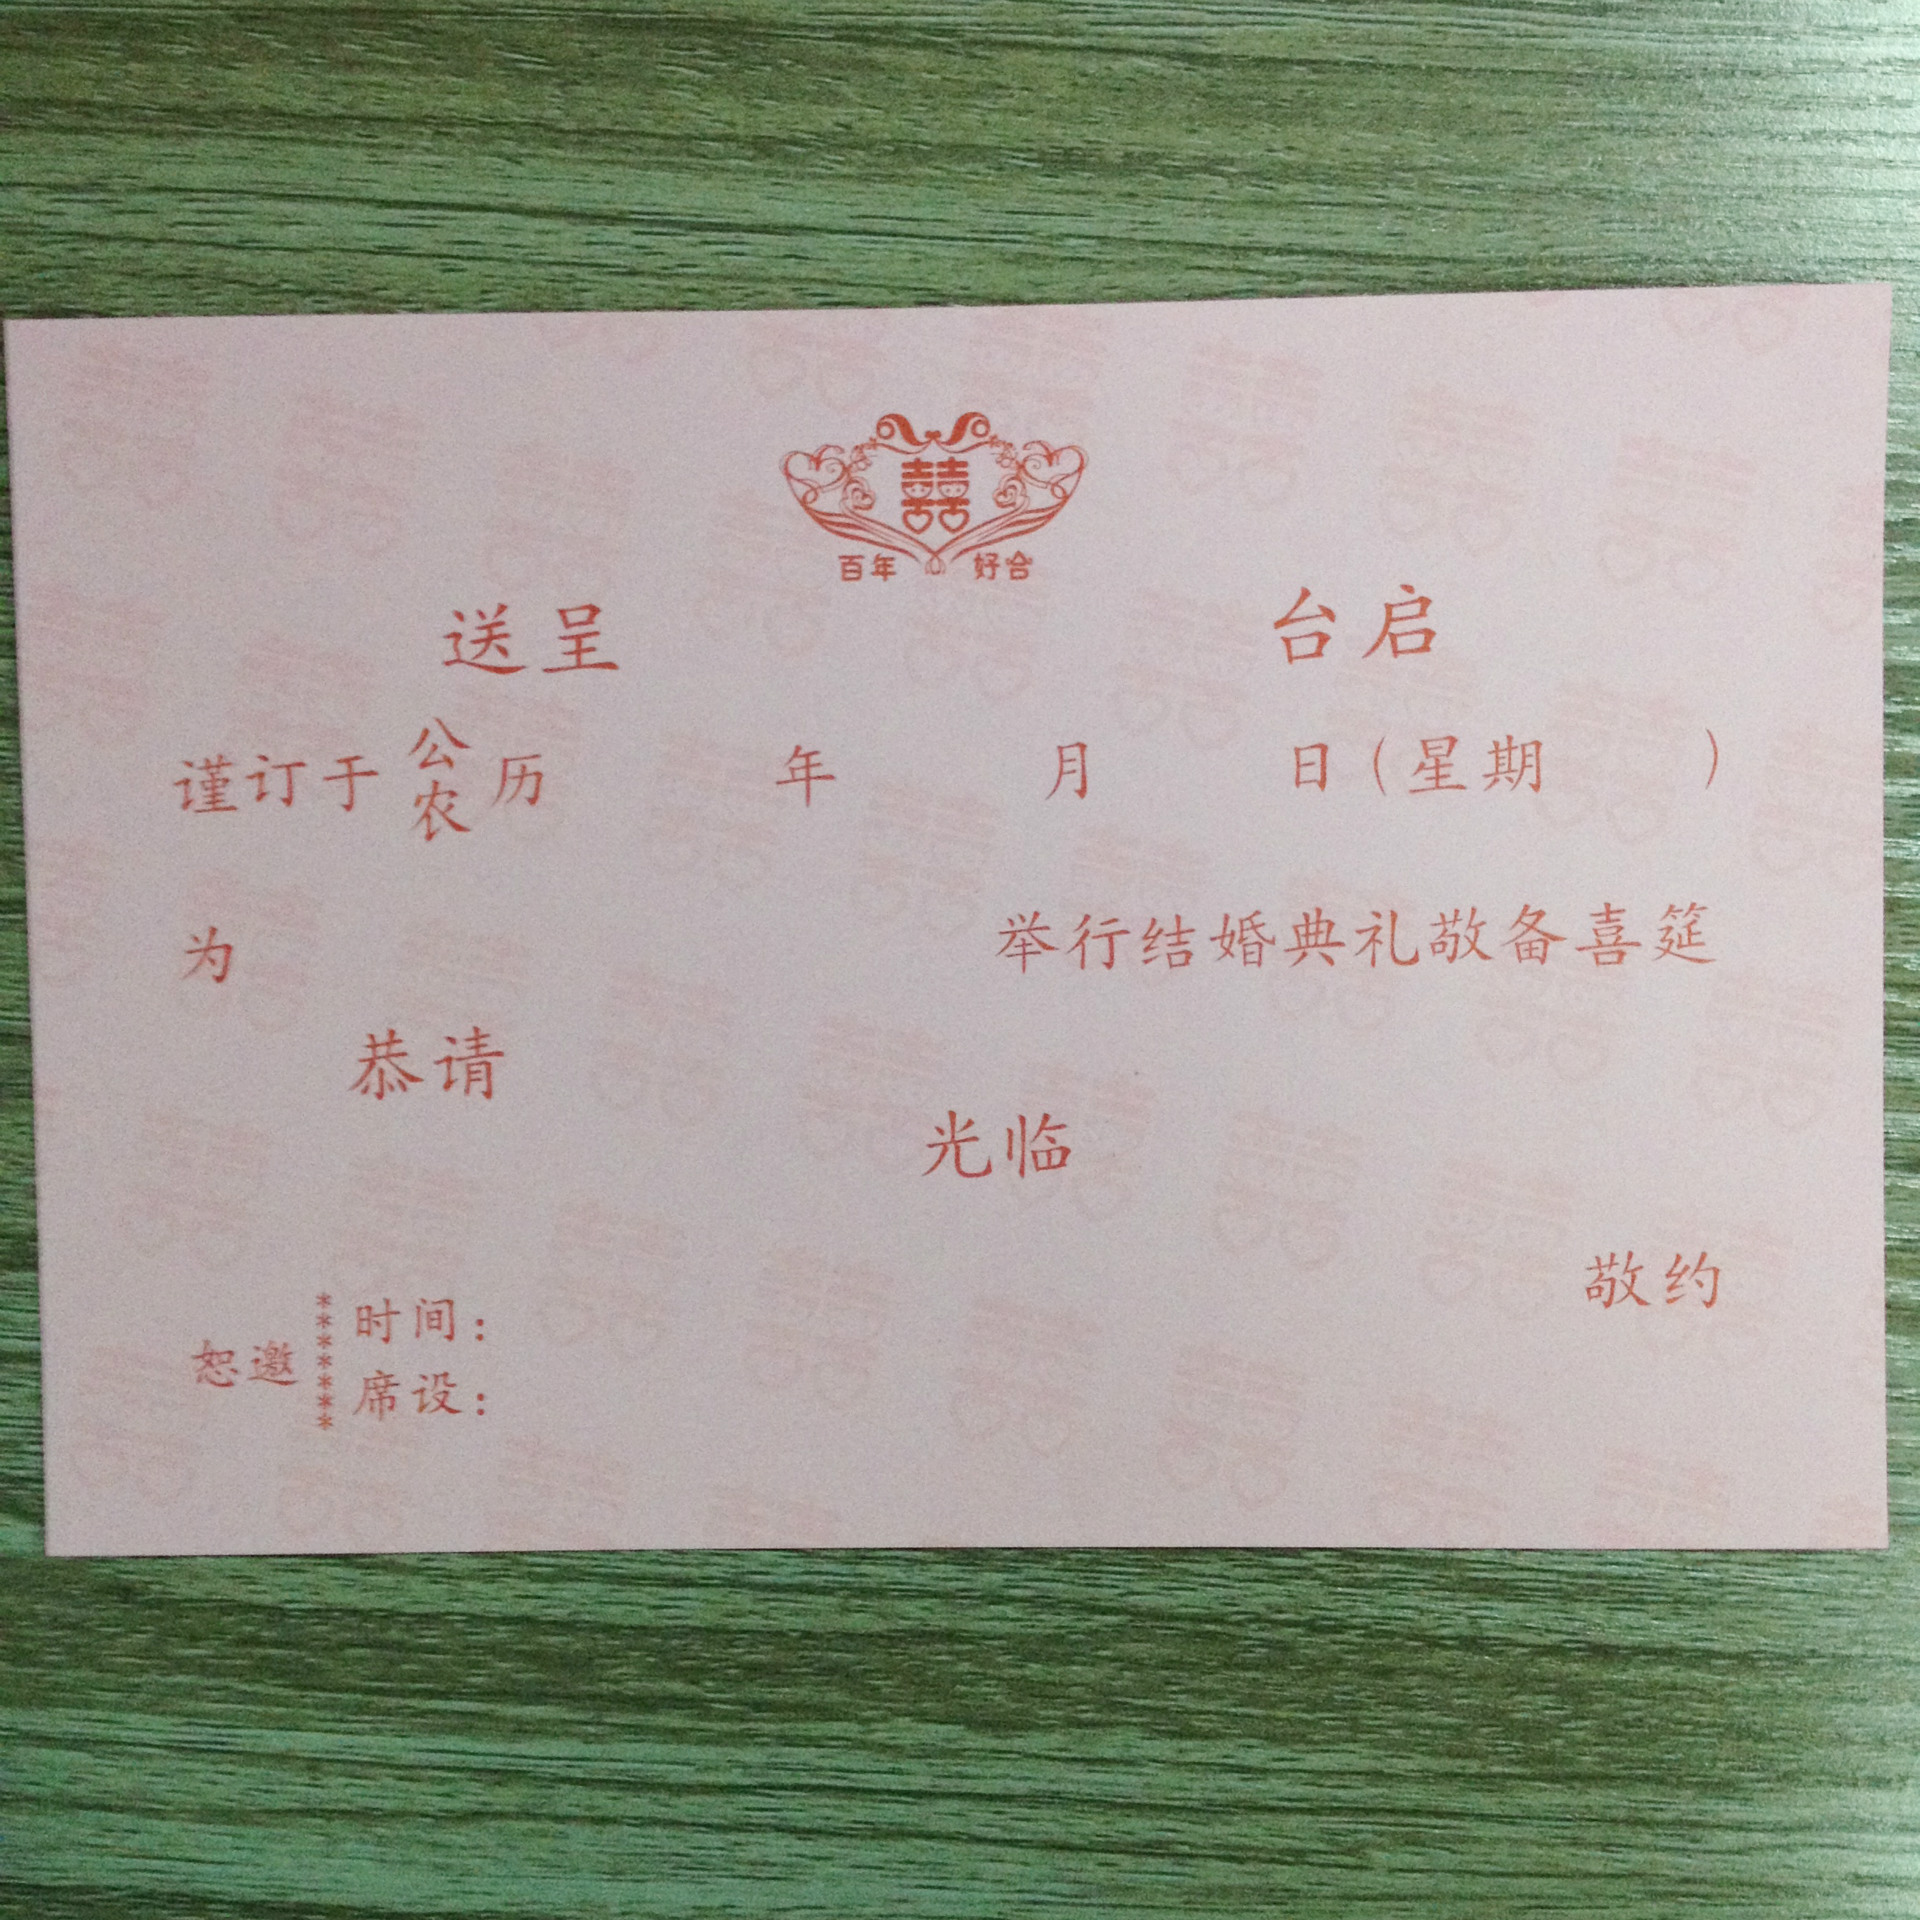 囍
百年 好合
送呈 台启
谨订于 公农 历 年 月 日(星期 )
为 举行结婚典礼敬备喜筵
恭请
光临
敬约
恕邀 ******* 时间:
席设: